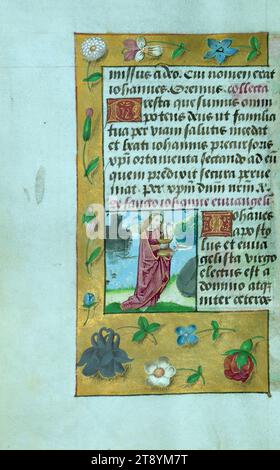 missus a deo. Cui nomen erat
iohannes. Oremus collecta
Presta quesumus omni
potens deus ut familia
tua per viam salutis incedat
et beati iohannis precursoris
xpi ortamenta sectando ad eum
quem predixit secura perue
niat. per xpm dnm nrm
De sancto iohanne euuangeli
Iohannes
aposto
lus et euua
gelista virgo
electus est a
domino atq
inter ceteros
alamy
Image ID: 2T8YM7T
www.alamy.com